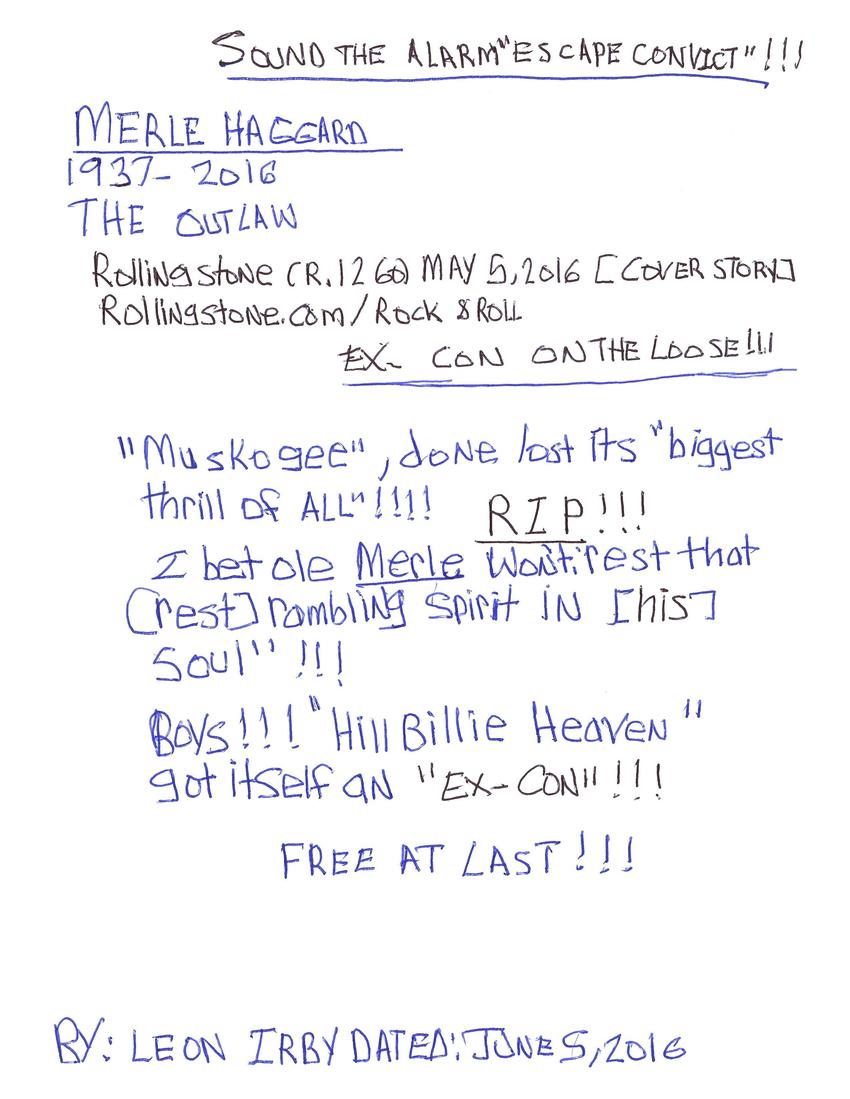 SOUND THE ALARM "ESCAPE CONVICT"!!!
MERLE HAGGARD
1937-2016
THE OUTLAW
Rollingstone (R.1260) MAY 5, 2016 [COVER STORY]
Rollingstone.com/Rock & ROLL
EX- CON ON THE LOOSE!!!
"Muskogee", done lost its "biggest
thrill of ALL"!!!!
RIP!!!
I bet ole Merle Won't rest that
[rest] rambling spirit in [his]
soul"!!!
Boys!!! "HillBillie Heaven"
got itself an "EX-CON"!!!
FREE AT LAST!!!
BY: LEON IRBY DATED: JUNE 5, 2016